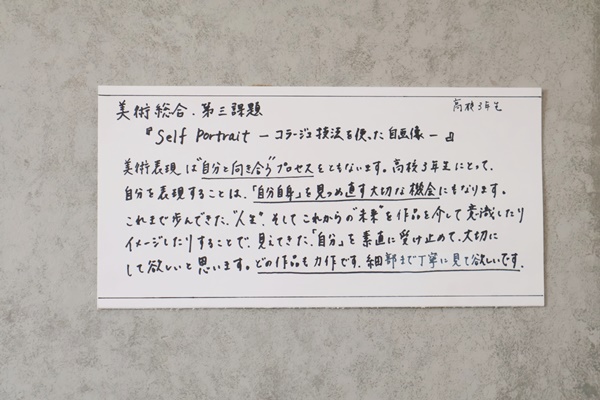 美術総合・第三課題
高校3年生
『Self Portrait ー コラージュ技法を使った自画像 ー 』
美術表現は"自分と向き合う"プロセスをともないます。高校3年生にとって、
自分を表現することは、「自分自身」を見つめ直す大切な機会にもなります。
これまで歩んできた、"人生"、そしてこれからの"未来"を作品を介して意識したり
イメージしたりすることで、見えてきた、「自分」を素直に受け止めて、大切に
して欲しいと思います。どの作品も力作です。細部まで丁寧に見て欲しいです。